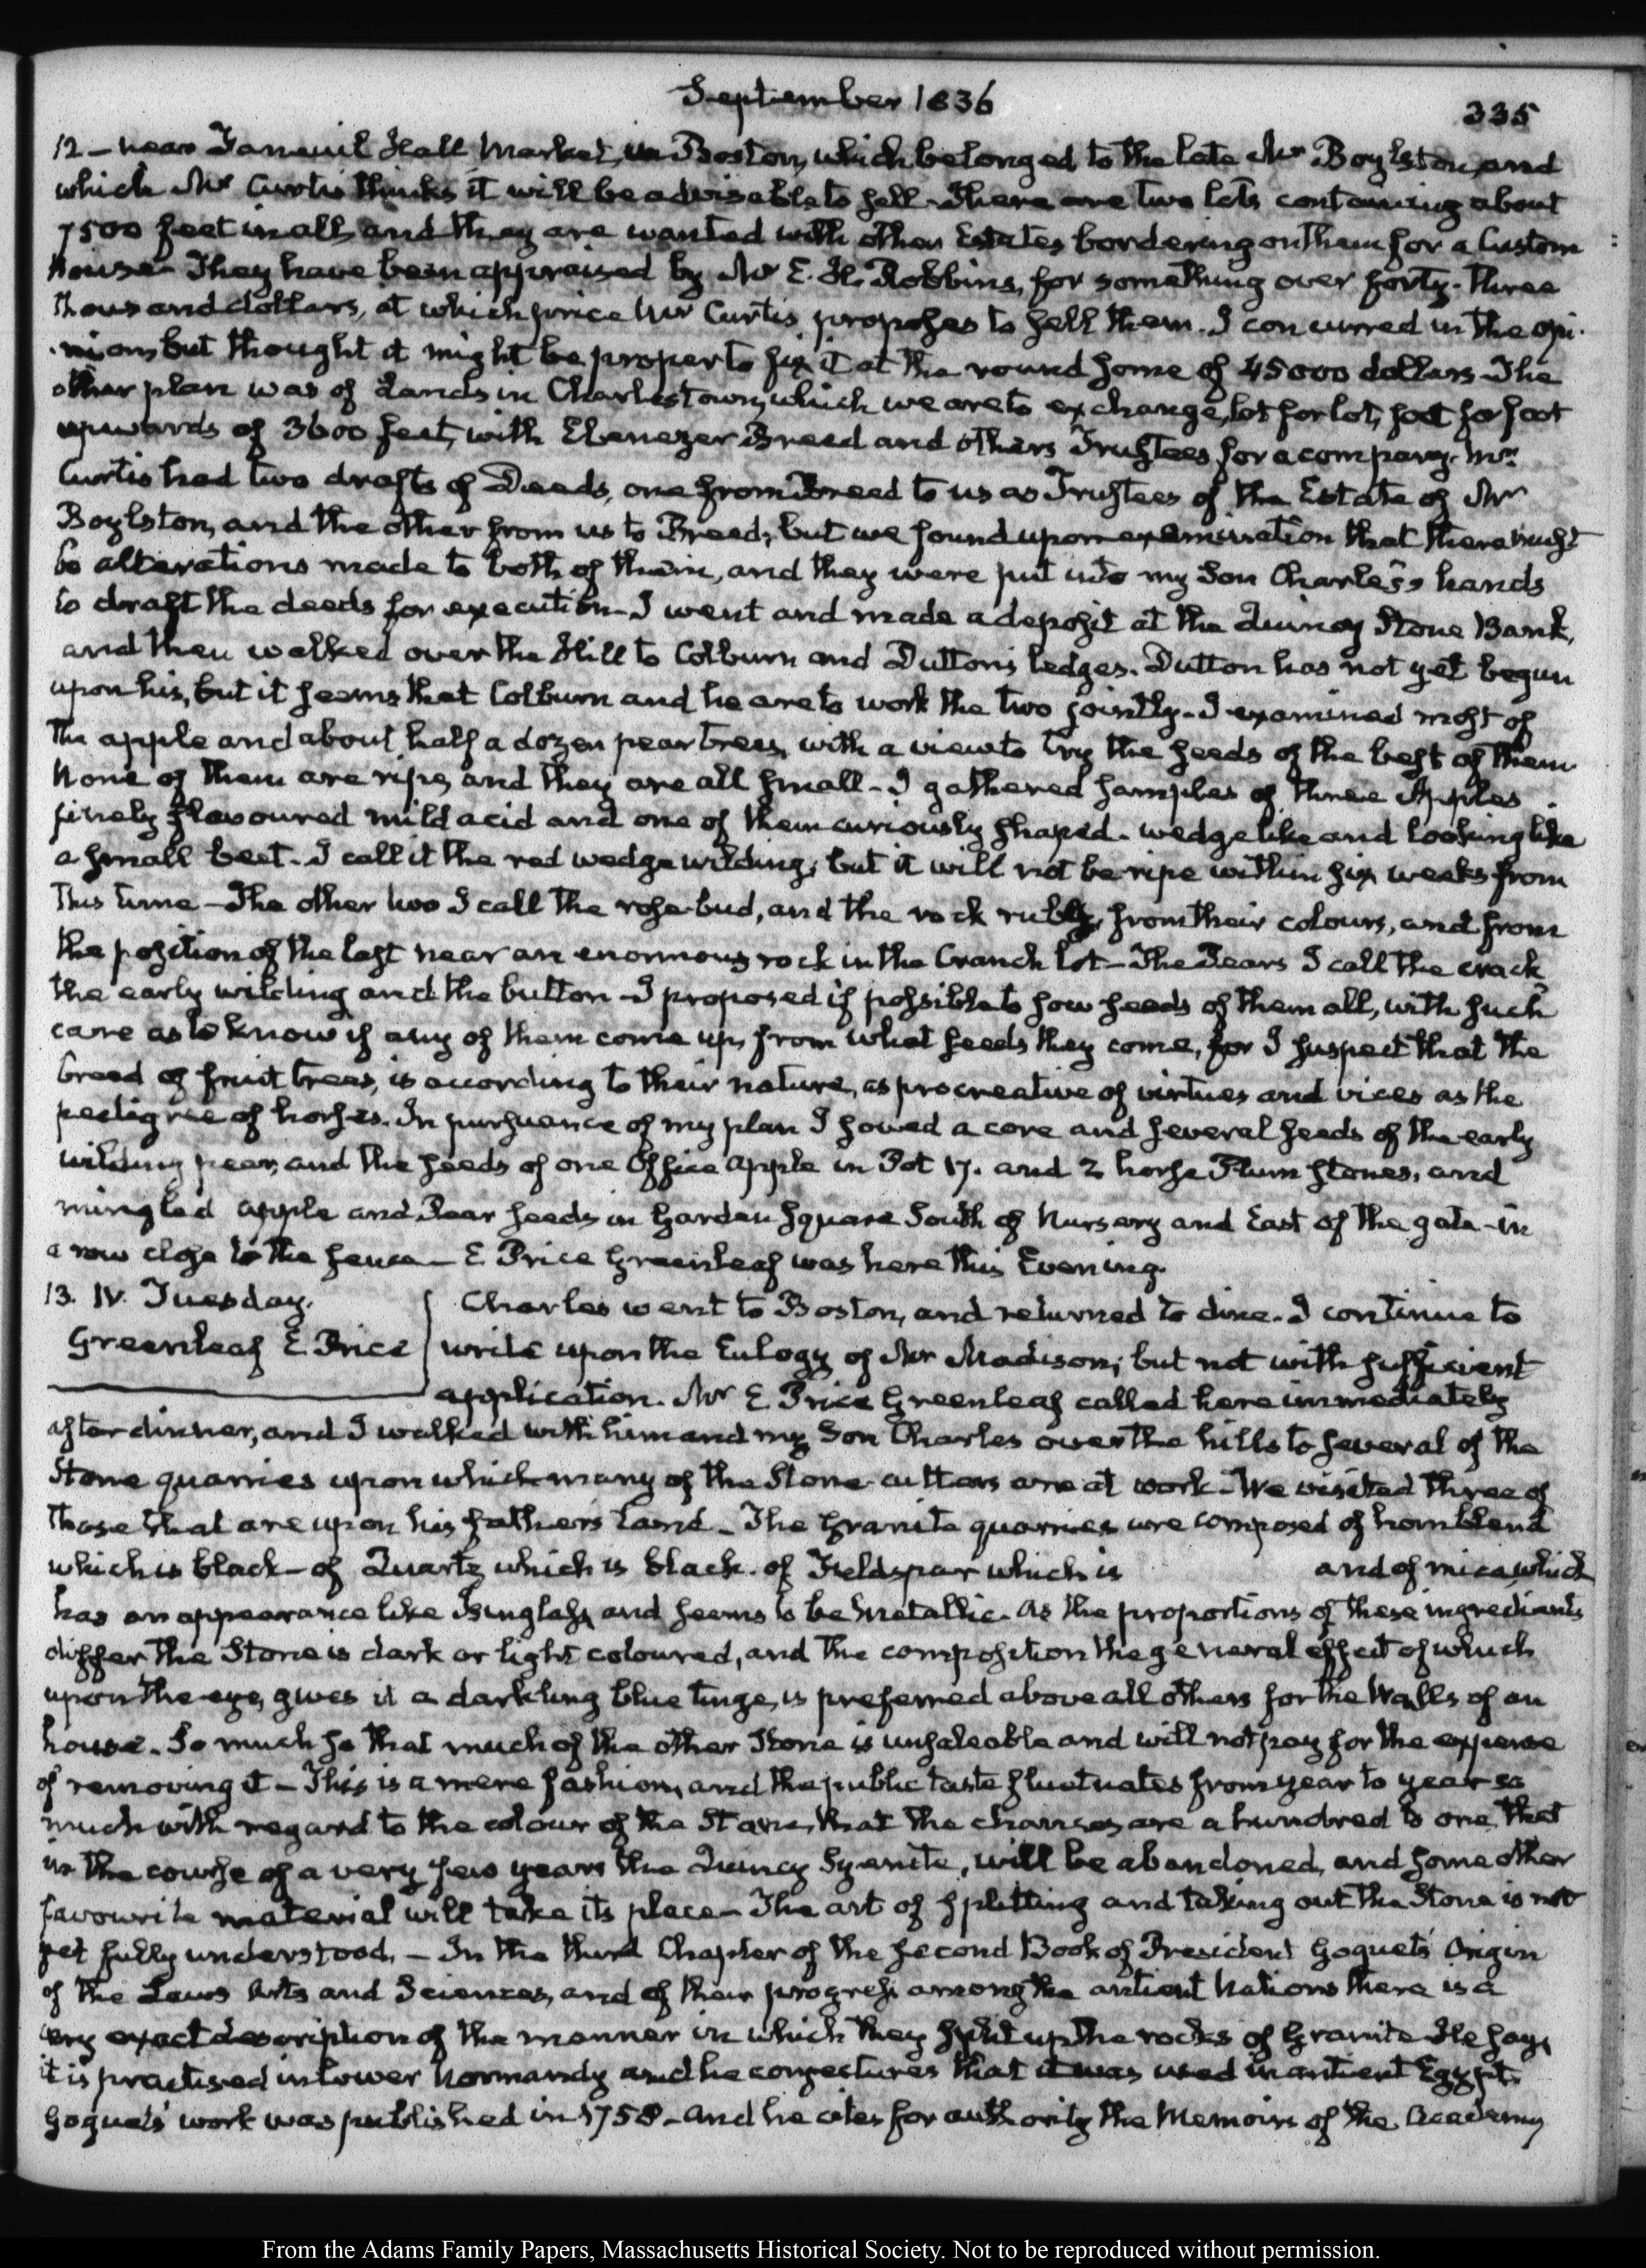 September 1836
335
12 – near Faneuil Hall Market, in Boston, which belonged to the late Mr Boylston, and
which Mr Curtis thinks it will be adviseable to sell. There are two lots containing about
7500 feet in all, and they are wanted with other Estates bordering on them for a Custom
house – They have been appraised by Mr E. H. Robbins, for something over forty-three
thousand dollars, at which price Mr Curtis proposes to sell them. I concurred in the opi-
nion, but thought it might be proper to fix it at the round some of 45000 dollars – The
other plan was of Lands in Charlestown, which we are to exchange, lot for lot, foot for foot
upwards of 3600 feet, with Ebenezer Breed and others Trustees for a company. Mr
Curtis had two drafts of Deeds, one from Breed to us as Trustees of the Estate of Mr
Boylston, and the other from us to Breed; but we found upon examination that there must
be alterations made to both of them, and they were put into my Son Charles's hands
to draft the deeds for execution – I went and made a deposit at the Quincy Stone Bank,
and then walked over the Hill to Colburn and Dutton's ledges. Dutton has not yet begun
upon his, but it seems that Colburn and he are to work the two jointly – I examined most of
the apple and about half a dozen pear trees, with a view to try the seeds of the best of them
None of them are ripe, and they are all small – I gathered samples of three Apples
finely flavoured mild acid and one of them curiously shaped – wedge like and looking like
a small beet – I call it the red wedge wilding; but it will not be ripe within six weeks from
this time – The other two I call the rose-bud, and the rock ruby, from their colours, and from
the position of the last near an enormous rock in the Cranch lot – The Pears I call the crack,
the early wilding and the button – I proposed if possible to sow seeds of them all, with such
care as to know if any of them come up, from what seeds they come, for I suspect that the
breed of fruit trees, is according to their nature, as procreative of virtues and vices as the
pedigree of horses. In pursuance of my plan I sowed a core and several seeds of the early
wilding pear, and the seeds of one Office apple in Pot 17. and 2 horse Plum stones, and
mingled apple and Pear seeds in Garden square South of Nursery and East of the gate – in
a row close to the fence – E Price Greenleaf was here this Evening.
13. IV. Tuesday.
Greenleaf E. Price
Charles went to Boston, and returned to dine. I continue to
write upon the Eulogy of Mr Madison; but not with sufficient
application. Mr E Price Greenleaf called here immediately
after dinner, and I walked with him and my Son Charles over the hills to several of the
Stone quarries upon which many of the Stone cutters are at work – We visited three of
those that are upon his father's Land – The Granite quarries are composed of hornblend
which is black – of Quartz which is black. of Feldspar which is and of mica, which
has an appearance like Isinglass, and seems to be metallic. As the proportions of these ingredients
differ the Stone is dark or light coloured, and the composition the general effect of which
upon the eye, gives it a darkling blue tinge, is preferred above all others for the Walls of an
house. So much so that much of the other Stone is unsaleable and will not pay for the expense
of removing it – This is a mere fashion, and the public taste fluctuates from year to year so
much with regard to the colour of the Stone, that the chances are a hundred to one, that
in the course of a very few years the Quincy Syenite, will be abandoned, and some other
favourite material will take its place – The art of splitting and taking out the Stone is not
yet fully understood. – In the third Chapter of the second Book of President Goguet's Origin
of the Laws Arts and Sciences, and of their progress among the antient Nations there is a
very exact description of the manner in which they split up the rocks of Granite – He says
it is practised in lower Normandy and he conjectures that it was used in antient Egypt.
Goguet's work was published in 1758 – and he cites for authority the Memoirs of the Academy
From the Adams Family Papers, Massachusetts Historical Society. Not to be reproduced without permission.